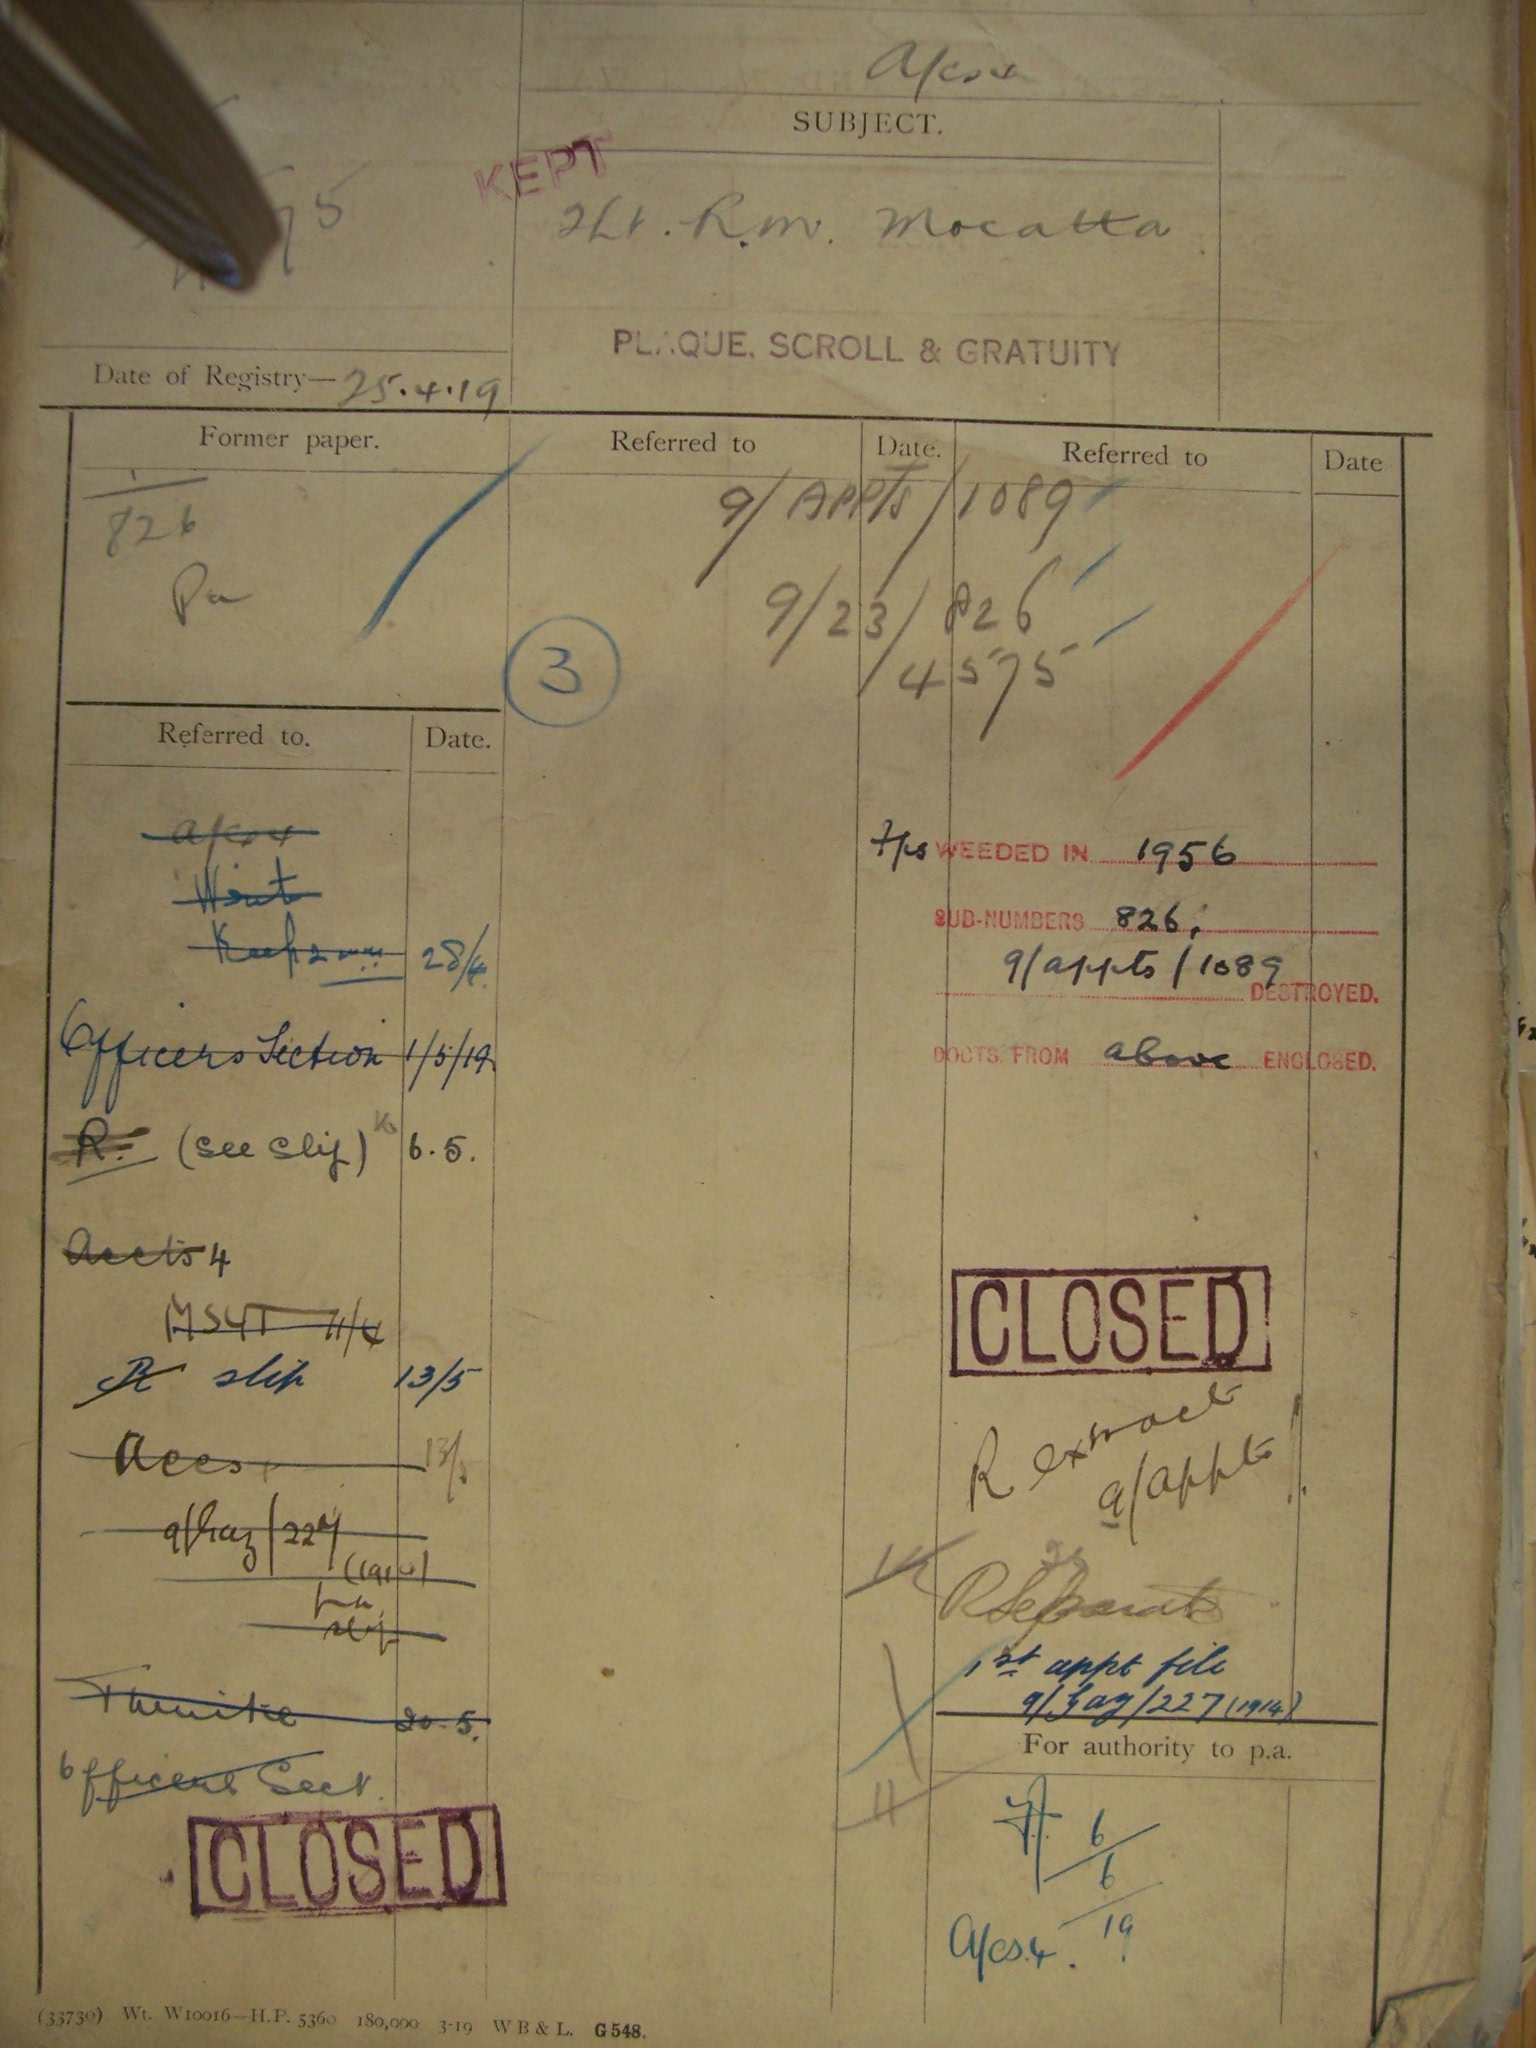 A/cs 4
SUBJECT.
KEPT
2Lt. R.M. Mocatta
75
PLAQUE, SCROLL & GRATUITY
Date of Registry— 25.4.19
Former paper.
Referred to
Date.
Referred to
Date
1
826
Pa
9/APPTS/1089
9/23/826
/4575
3
Referred to.
Date.
A/cs 4
28/4
Officers Section 1/5/19
R. (see slip) 6.5.
Accts 4
MS4T 11/4
R slip 13/5
Accs. 13/5
9/Gaz/227
(1914)
pa
slip
20.5.
Officers Sect.
CLOSED
WEEDED IN 1956
SUB-NUMBERS 826,
9/appts/1089
DESTROYED.
DOCTS. FROM above ENCLOSED.
CLOSED
R extract
9/appts
R Separate
1st appt file
9/Gaz/227 (1914)
For authority to p.a.
6
6
19
A/cs.4.
(33730) Wt. W10016—H.P. 5360 180,000 3-19 W B & L. G 548.